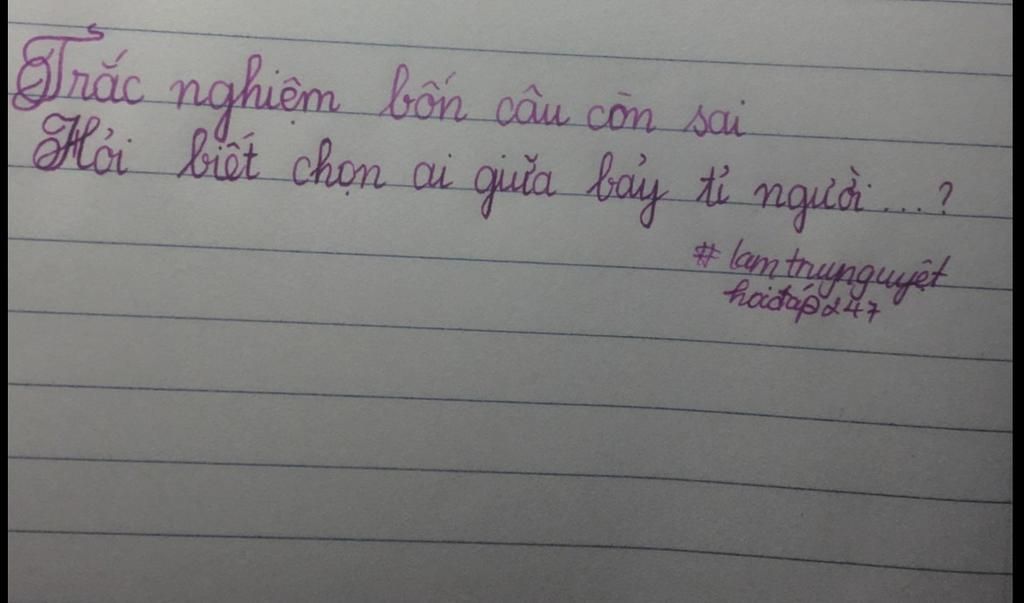 Trắc nghiệm bốn câu còn sai
Hỏi biết chọn ai giữa bảy tỉ người...?
#lamtruynguyệt
hoiđáp247